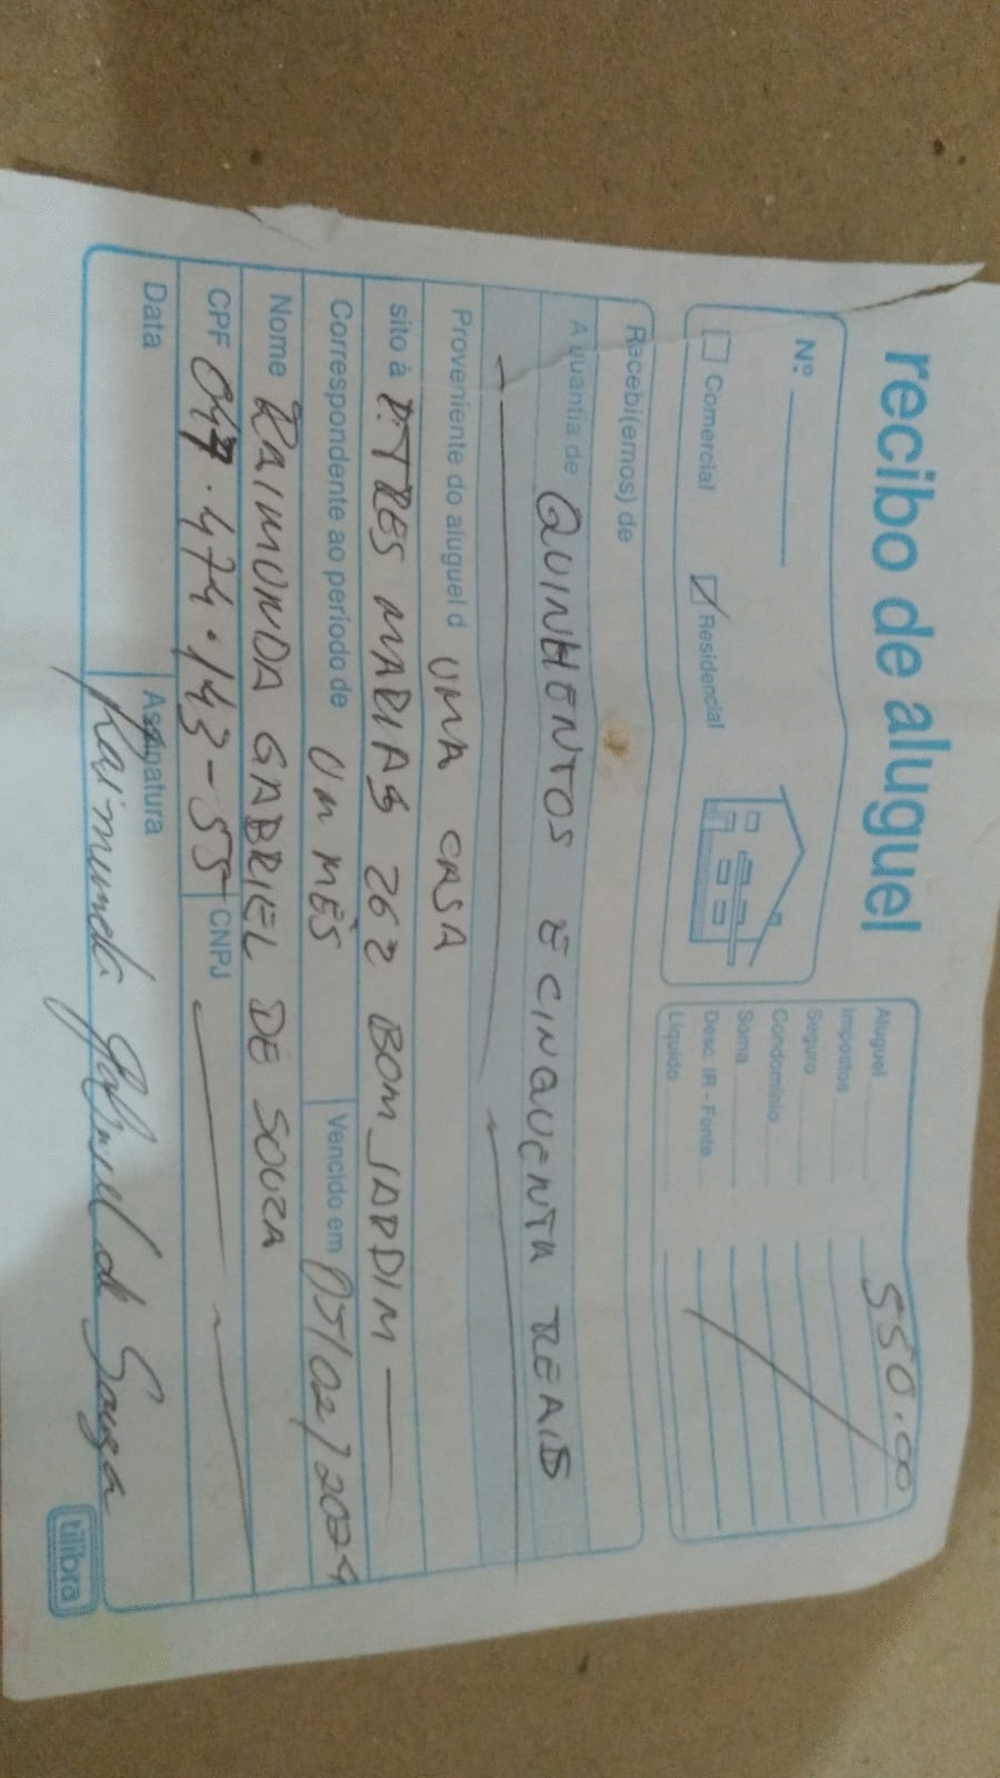 recibo de aluguel
Nº
Comercial
Residencial
Aluguel 550.00
Impostos
Seguro
Condomínio
Soma
Desc. IR - Fonte
Líquido
Recebi(emos) de
A quantia de QUINHENTOS E CINQUENTA REAIS
Proveniente do aluguel d UMA CASA
sito à R. TRES MARIAS 262 BOM JARDIM
Correspondente ao período de Um MÊS Vencido em 05/02/2024
Nome RAIMUNDA GABRIEL DE SOUZA
CPF 047.474.143-55 CNPJ
Data Assinatura
Raimunda Gabriel de Souza
tilibra